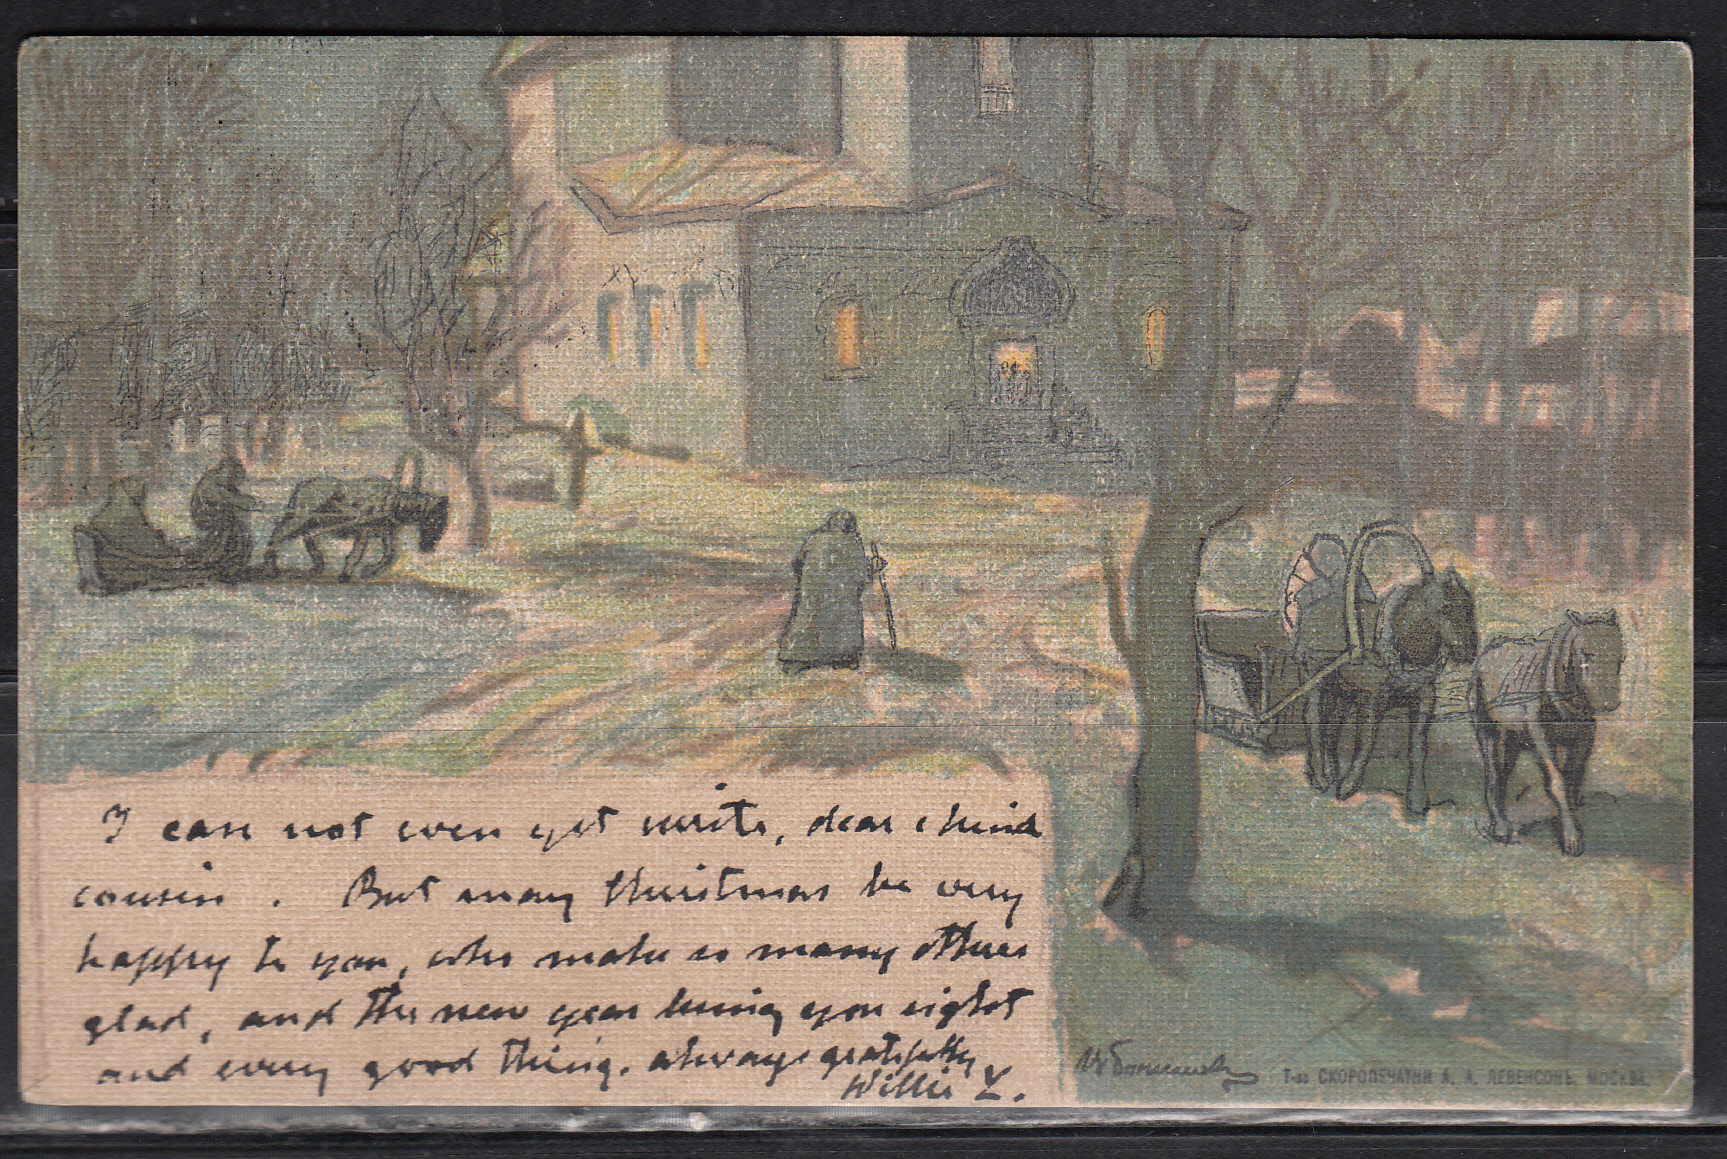 I can not even yet write, dear kind
cousin. But may Christmas be very
happy to you, who make so many others
glad, and the new year bring you
and every good thing. always gratefully
Willie
Т-во СКОРОПЕЧАТНИ А. А. ЛЕВЕНСОНЪ, МОСКВА.